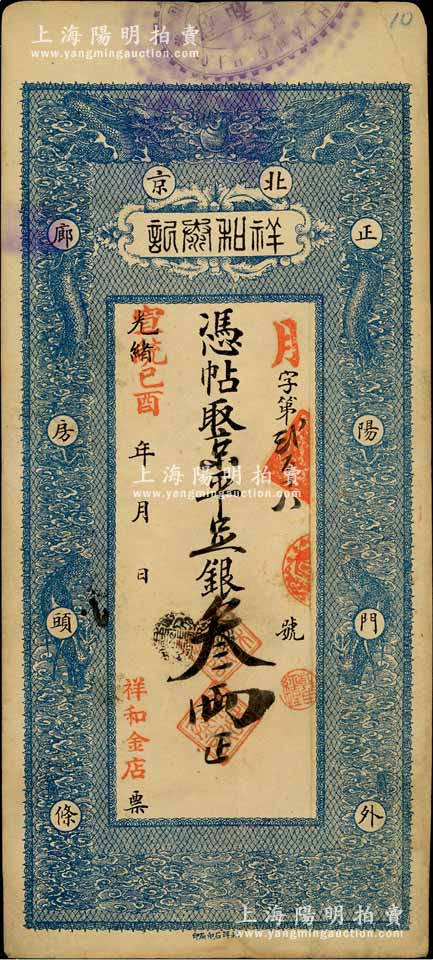 上海陽明拍賣
www.yangmingauction.com
10
北京
祥和齋記
正陽門外
廊房頭條
月字第
號
憑帖取京平足銀叁兩正
光緒
宣統己酉
年 月 日
祥和金店
票
上海陽明拍賣
www.yangmingauction.com
上海陽明拍賣
www.yangmingauction.com